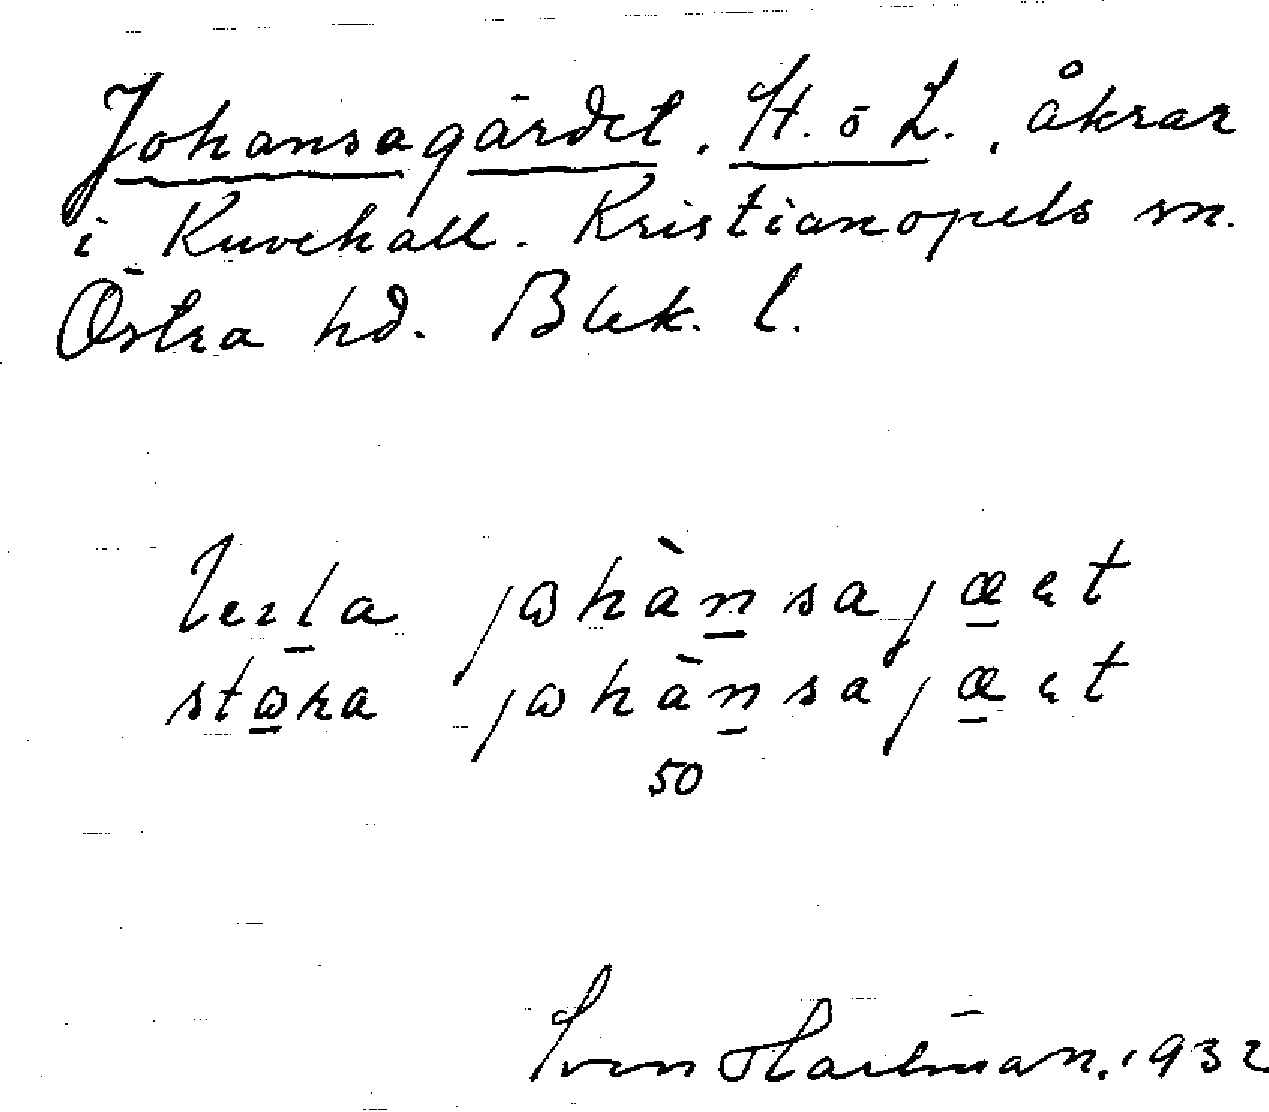 Johansagärdet, St. o L., åkrar
i Kuvehall. Kristianopels sn.
Östra hd. Blek. l.
jɷhànsajæɛt
stɷra jɷhànsajæɛt
50
Sven Hartman. 1932